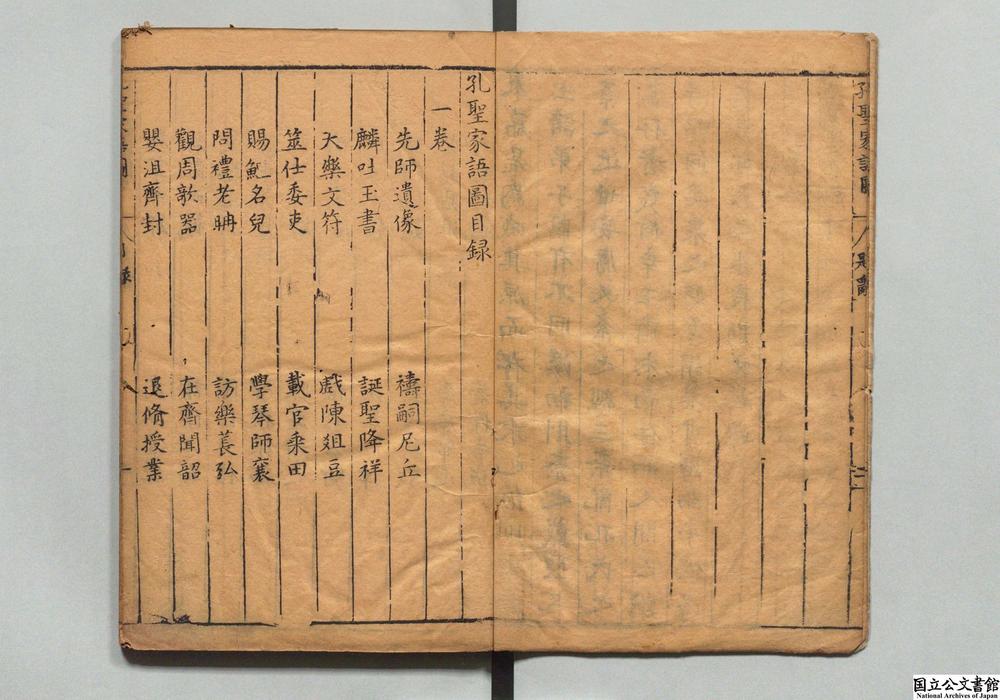 孔聖家語圖
孔聖家語圖目録
一卷
先師遺像　禱嗣尼丘
麟吐玉書　誕聖降祥
天樂文符　戲陳爼豆
筮仕委吏　載官乘田
賜魚名兒　學琴師襄
問禮老聃　訪樂萇弘
觀周欹器　在齊聞韶
嬰沮齊封　退脩授業
国立公文書館
National Archives of Japan